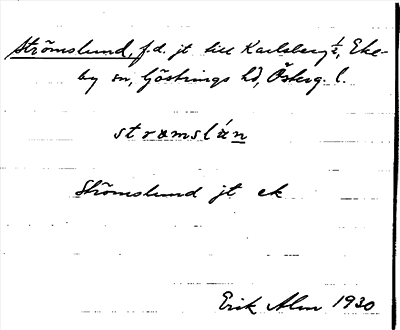 Strömslund, f.d. jt till Karlsberg ½, Eke-
by sn, Göstrings hd, Österg. l.
stromslán
Strömslund jt ek
Erik Alm 1930